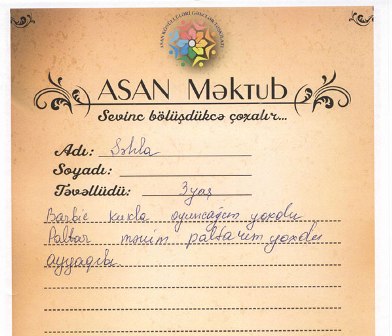 ASAN KÖNÜLLÜLƏRİ GƏNCLƏR TƏŞKİLATI
ASAN Məktub
Sevinc bölüşdükcə çoxalır...
Adı: Səhla
Soyadı:
Təvəllüdü: 3 yaş
Barbie kukla oyuncağım yoxdu
Paltar mənim paltarım yoxdu
ayyaqabı